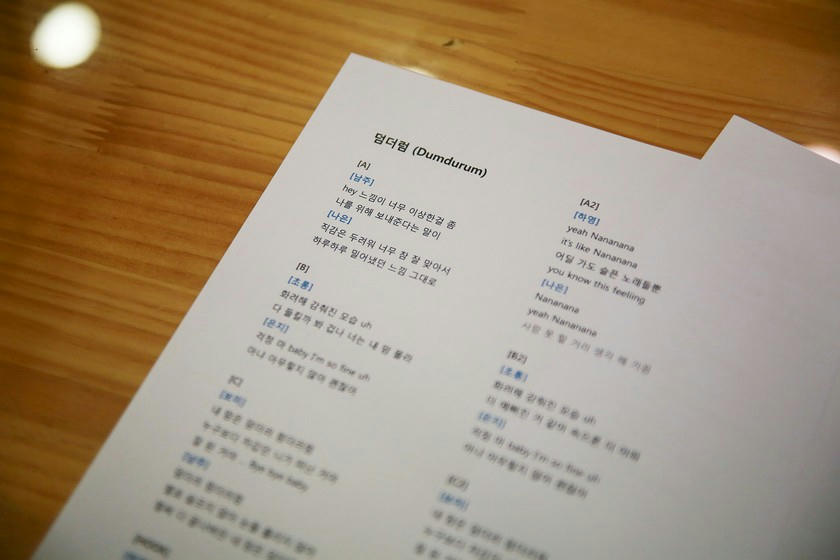 덤더럼 (Dumdurum)
[A]
[남주]
hey 느낌이 너무 이상한걸 좀
나를 위해 보내준다는 말이
[나은]
직감은 두려워 너무 참 잘 맞아서
하루하루 밀어냈던 느낌 그대로
[B]
[초롱]
화려해 감춰진 모습 uh
다 들킬까 봐 겁나 너는 내 맘 몰라
[은지]
걱정 마 baby I'm so fine uh
아냐 아무렇지 않아 괜찮아
[C]
[보미]
내 맘은 덤더러 덤더러럼
누구보다 직감은 니가 떠난 거야
잘 된 거야 ... Bye bye baby
[남주]
덤더러 덤더러럼
[A2]
[하영]
yeah Nananana
it's like Nananana
어딜 가도 슬픈 노래들뿐
you know this feeliing
[나은]
Nananana
yeah Nananana
사람 못 할 거라 생각 해 가끔
[B2]
[초롱]
화려해 감춰진 모습 uh
[은지]
걱정 마 baby I'm so fine uh
아냐 아무렇지 않아 괜찮아
[C2]
[보미]
내 맘은 덤더러 덤더러럼